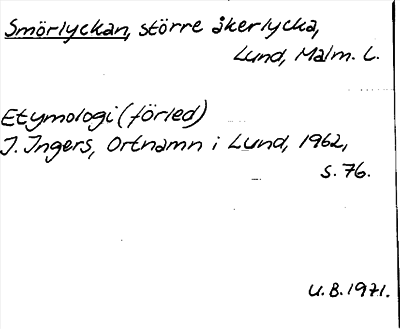 Smörlyckan, större åkerlycka,
Lund, Malm. L.
Etymologi (förled)
I. Ingers, Ortnamn i Lund, 1962,
s. 76.
U.B. 1971.